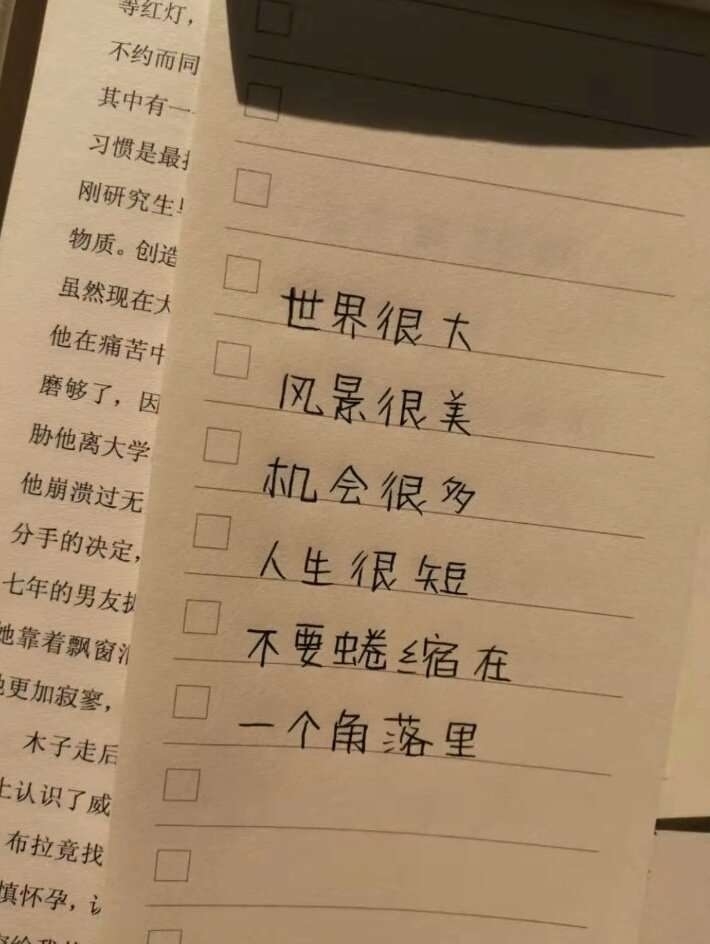 等红灯，
不约而同
其中有一
习惯是最
刚研究生
物质。创造
虽然现在大
他在痛苦中
磨够了，因
胁他离大学
他崩溃过无
分手的决定，
七年的男友
她靠着飘窗
更加寂寥，
木子走后
上认识了威
布拉竟找
慎怀孕，
世界很大
风景很美
机会很多
人生很短
不要蜷缩在
一个角落里